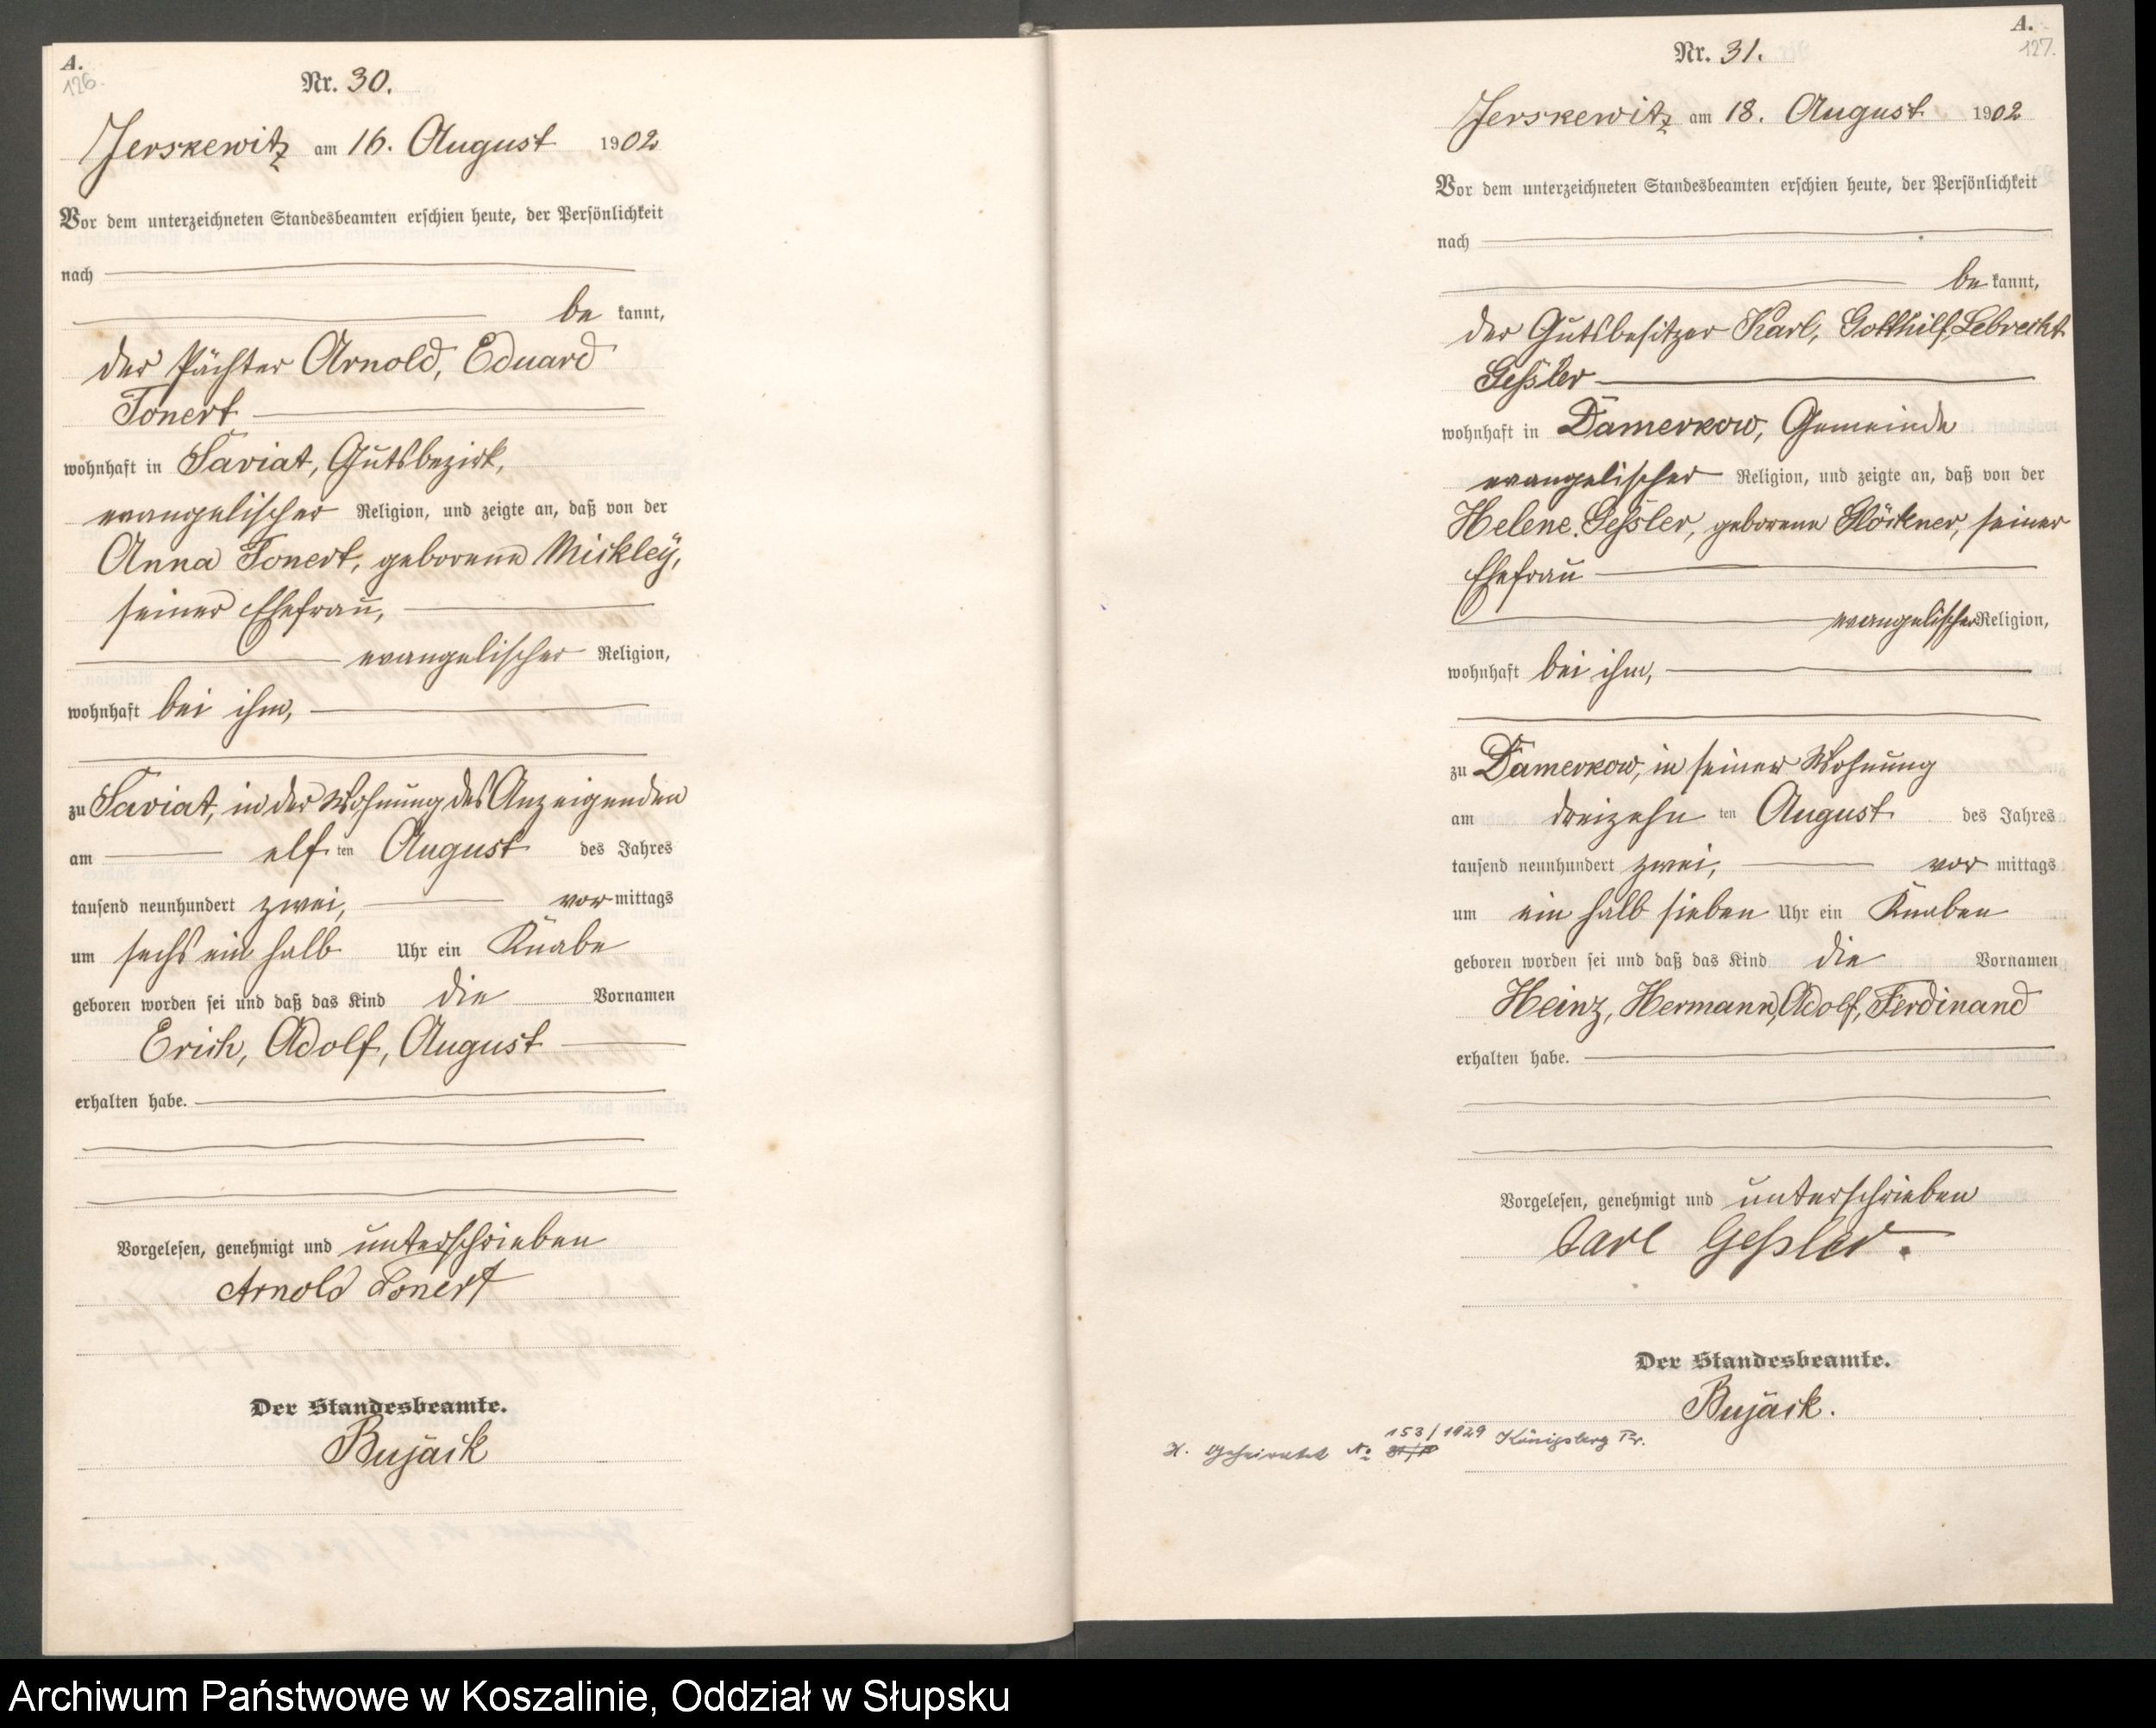 A.
126.
Nr. 30.
Jerskewitz am 16. August 1902
Vor dem unterzeichneten Standesbeamten erschien heute, der Persönlichkeit
nach
be kannt,
der Pächter Arnold, Eduard
Tonert
wohnhaft in Saviat, Gutsbezirk,
evangelischer Religion, und zeigte an, daß von der
Anna Tonert, geborene Mickley,
seiner Ehefrau,
evangelischer Religion,
wohnhaft bei ihm,
zu Saviat, in der Wohnung des Anzeigenden
am elf ten August des Jahres
tausend neunhundert zwei, vor mittags
um sechs ein halb Uhr ein Knabe
geboren worden sei und daß das Kind die Vornamen
Erich, Adolf, August
erhalten habe.
Vorgelesen, genehmigt und unterschrieben
Arnold Tonert
Der Standesbeamte.
Bujack
A.
127.
Nr. 31.
Jerskewitz am 18. August 1902
Vor dem unterzeichneten Standesbeamten erschien heute, der Persönlichkeit
nach
be kannt,
der Gutsbesitzer Karl, Gotthilf, Lebrecht
Geßler
wohnhaft in Damerkow, Gemeinde
evangelischer Religion, und zeigte an, daß von der
Helene Geßler, geborene Glöckner, seiner
Ehefrau
evangelischer Religion,
wohnhaft bei ihm,
zu Damerkow, in seiner Wohnung
am dreizehn ten August des Jahres
tausend neunhundert zwei, vor mittags
um ein halb sieben Uhr ein Knaben
geboren worden sei und daß das Kind die Vornamen
Heinz, Hermann, Adolf, Ferdinand
erhalten habe.
Vorgelesen, genehmigt und unterschrieben
Carl Geßler.
Der Standesbeamte.
Bujack.
Geheiratet No 153/1929 Königsberg Pr.
Archiwum Państwowe w Koszalinie, Oddział w Słupsku